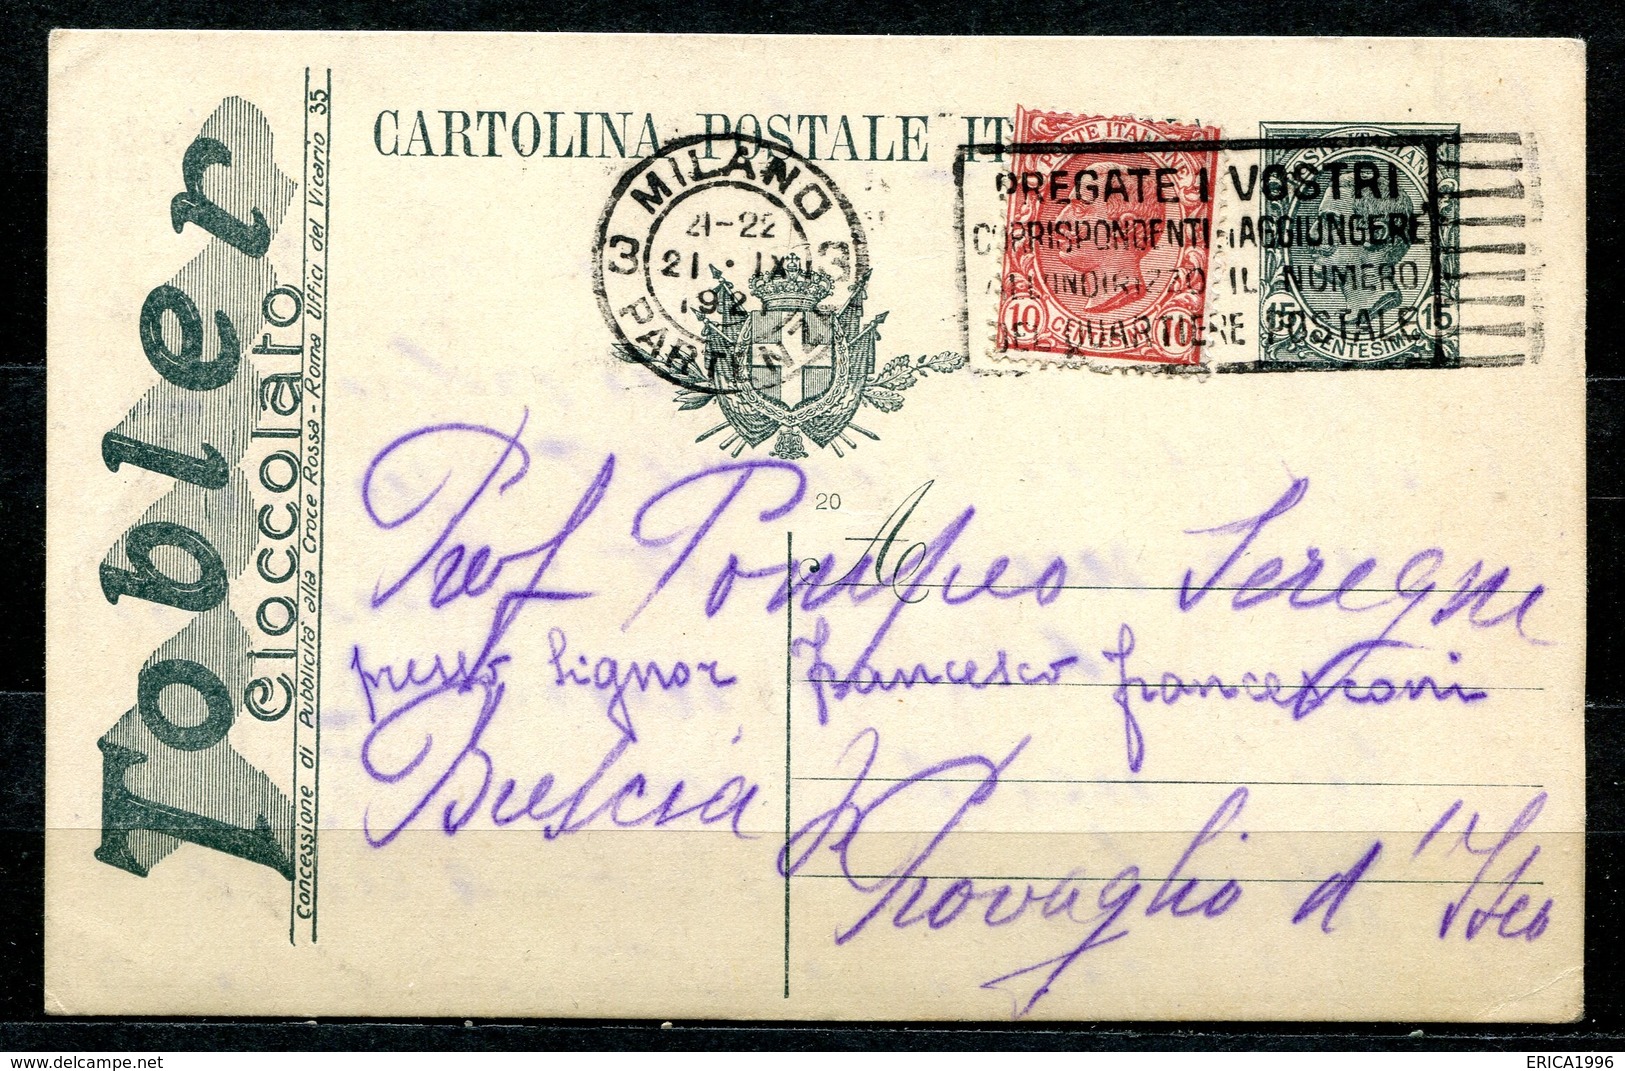 Tobler
Cioccolato
Concessione di Pubblicità alla Croce Rossa - Roma Uffici del Vicario 35
CARTOLINA POSTALE IT
MILANO
21-22
21 · IX
192
3 3
PARTENZA
POSTE ITALIANE
10 CENTESIMI 10
POSTE ITALIANE
15 CENTESIMI 15
PREGATE I VOSTRI
CORRISPONDENTI DI AGGIUNGERE
ALL'INDIRIZZO IL NUMERO
DEL QUARTIERE POSTALE
20
A
Prof Pompeo Seregni
presso Signor Francesco Francesconi
Brescia
Provaglio d'Iseo
ERICA1996